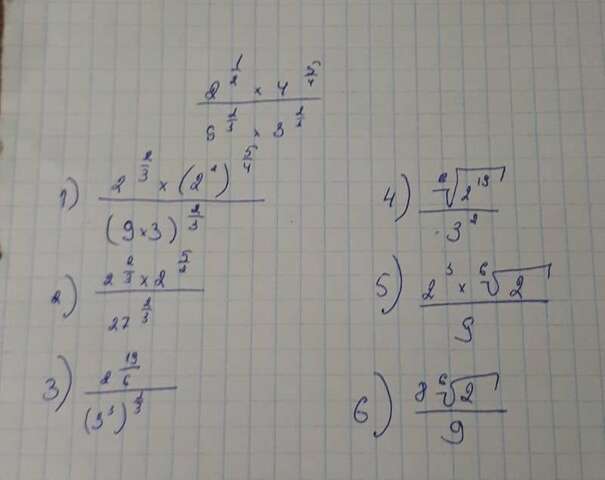 2^(1/2) × 4^(5/4) / 9^(2/3) × 3^(2/3)
1) 2^(2/3) × (2^2)^(5/4) / (9×3)^(2/3)
2) 2^(2/3) × 2^(5/2) / 27^(2/3)
3) 2^(19/6) / (3^3)^(2/3)
4) ⁶√(2^19) / 3^2
5) 2^3 × ⁶√2 / 9
6) 8 ⁶√2 / 9